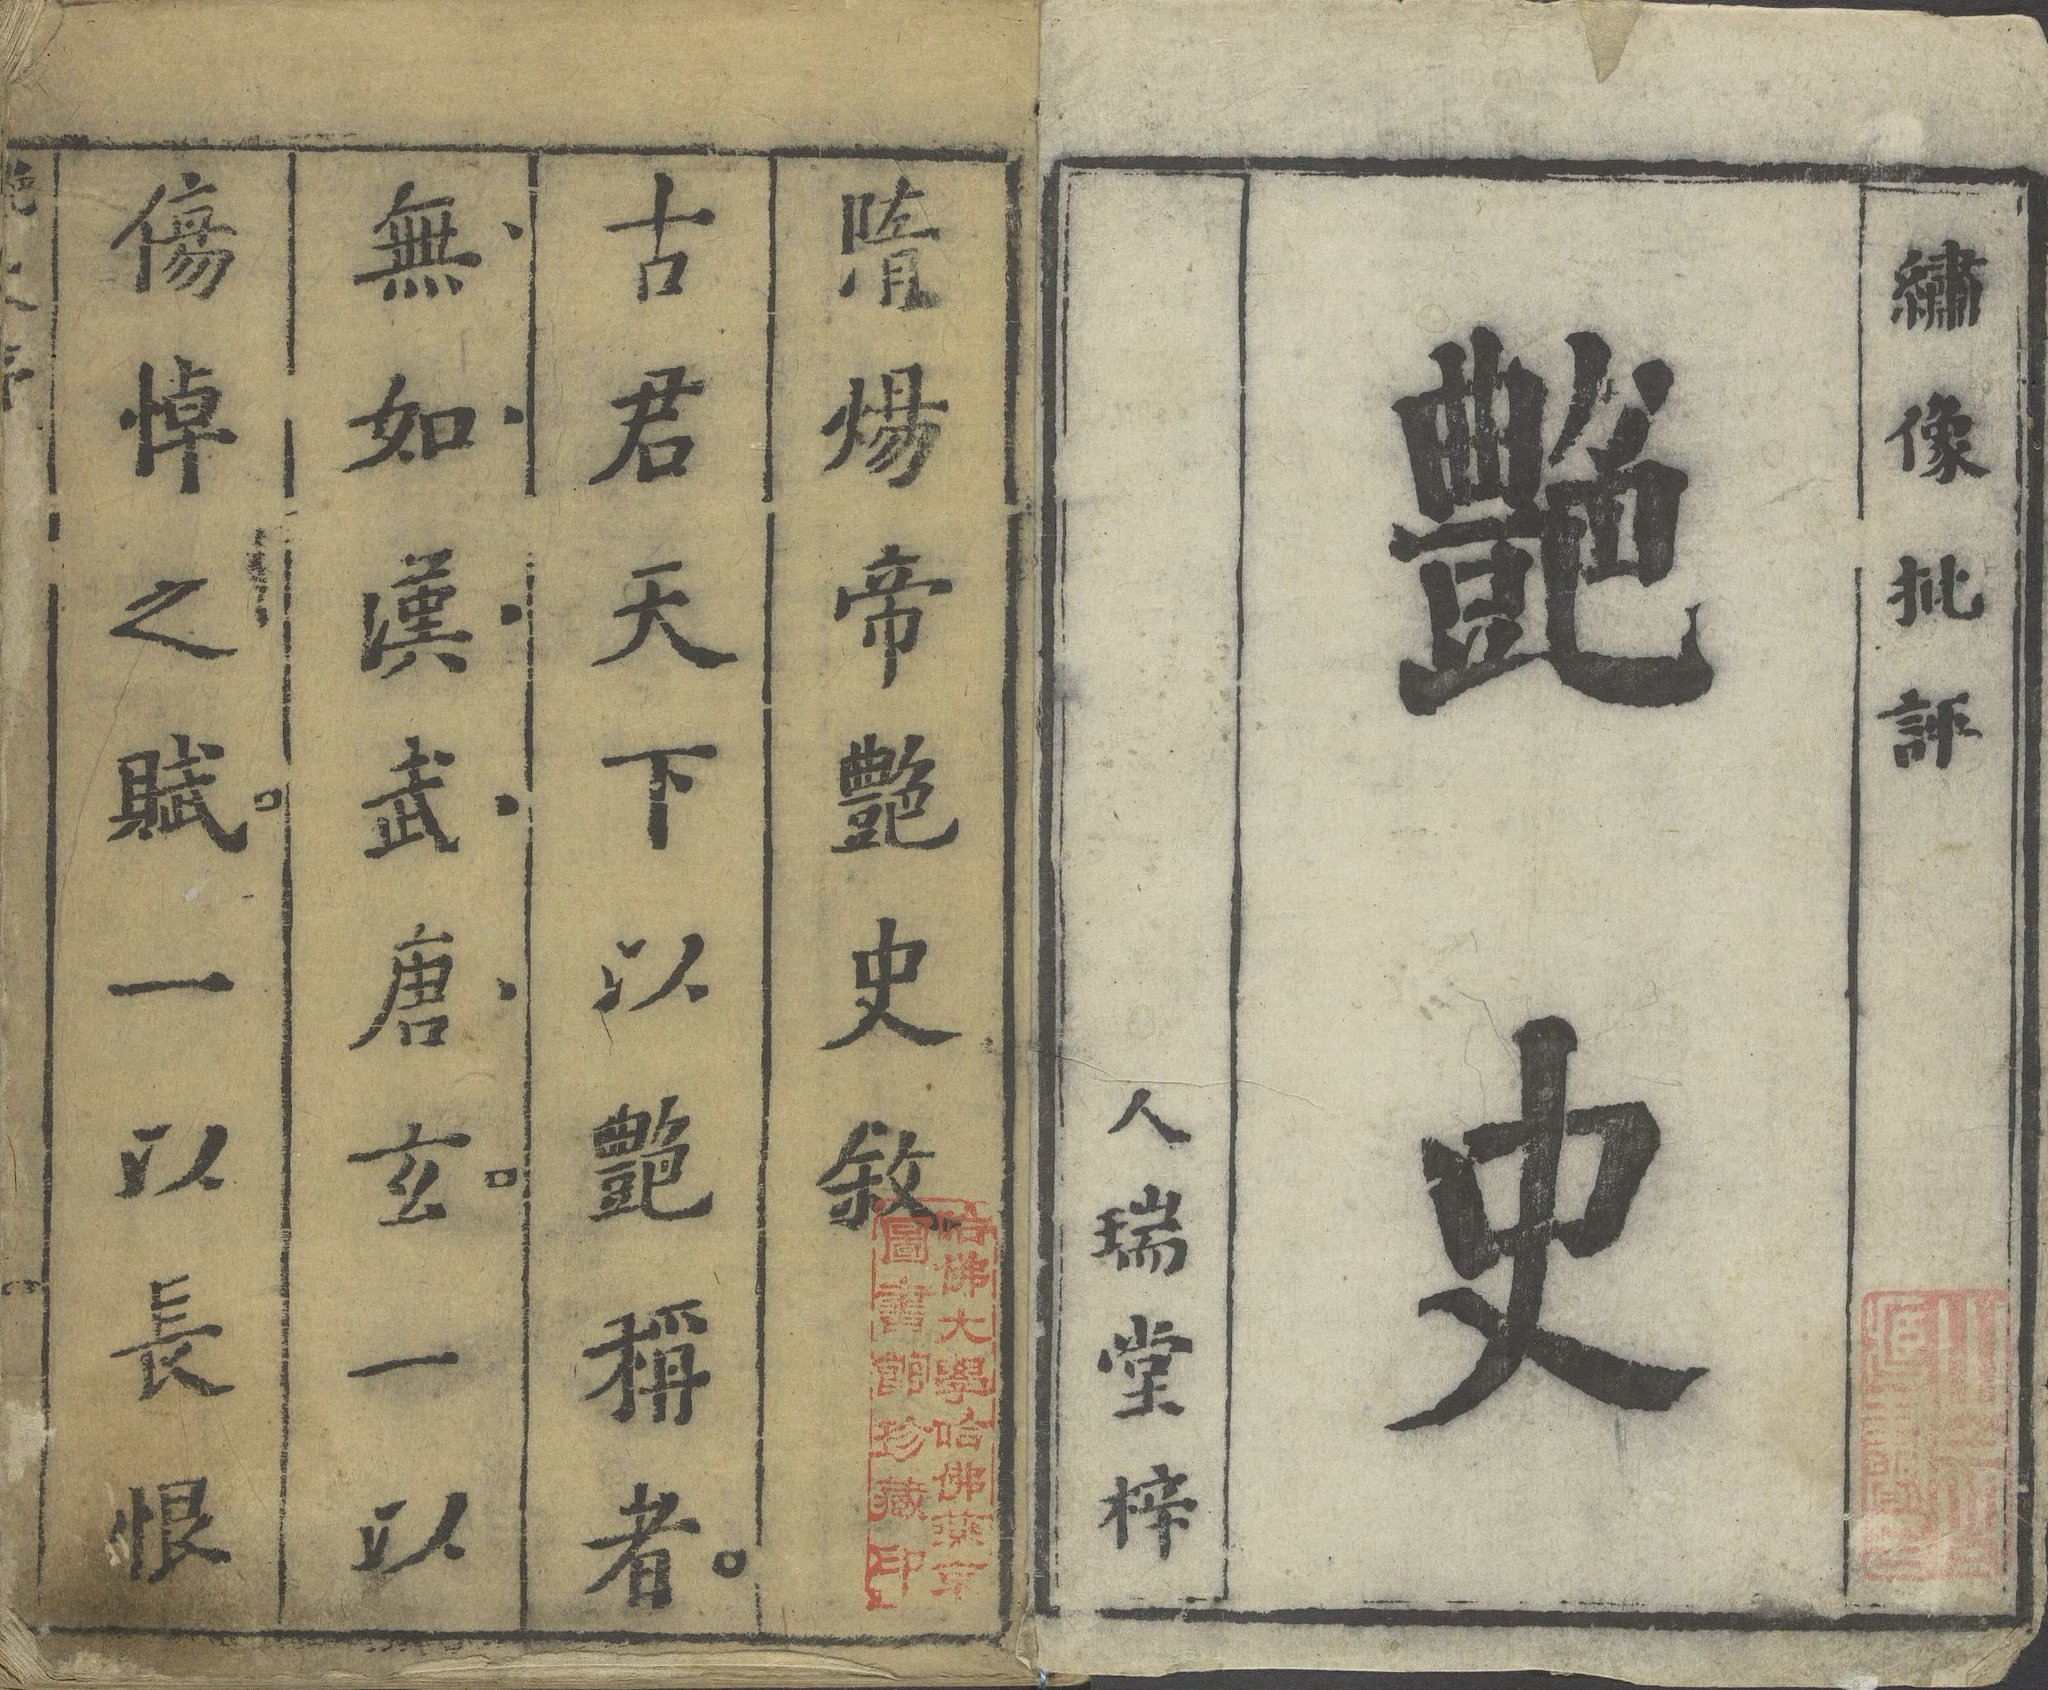 繡像批評
艶史
人瑞堂梓
隋煬帝艶史敘
古君天下以艶稱者。
無如漢武唐玄。一以
傷悼之賦。一以長恨
哈佛大學哈佛燕京
圖書館珍藏印